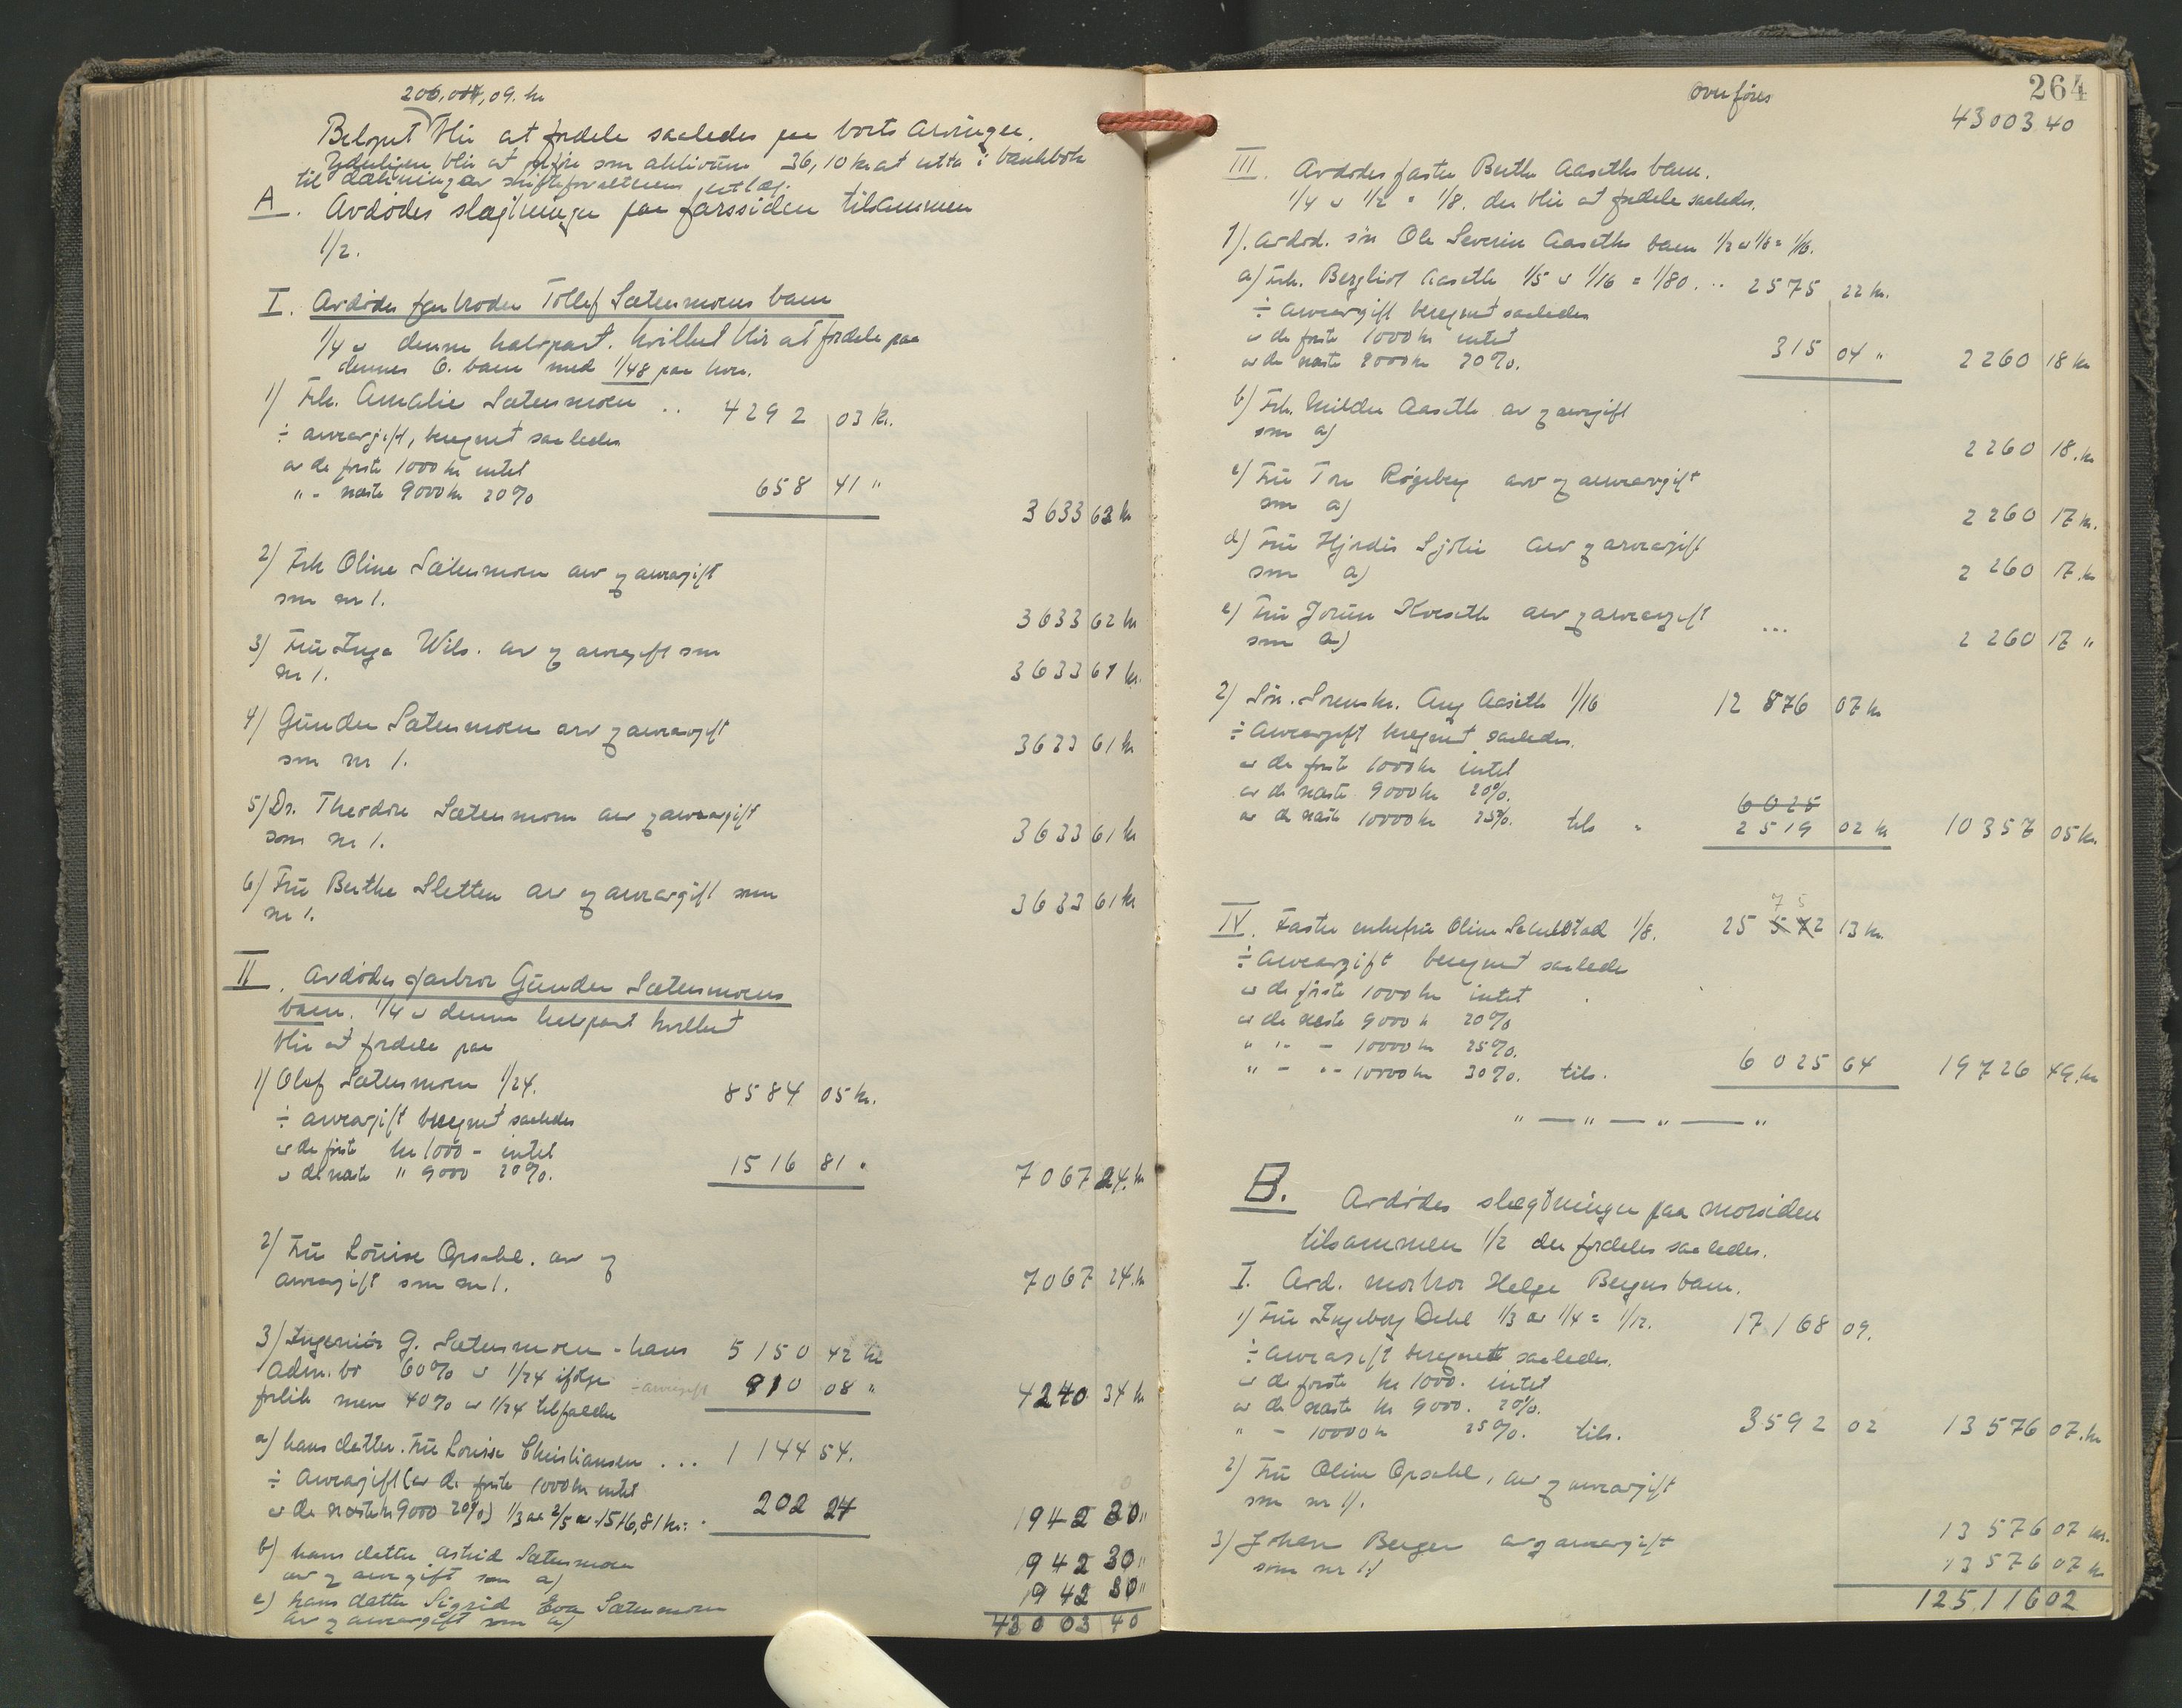 206,017,09. kr
Beløpet blir at fordele saaledes paa borts arvinger.
Yderligere blir at utføre som aktivum 36,10 kr at utta i bankbok
til dækning av skifteforvalterens utlæg.
A. Avdødes slægtninger paa farssiden tilsammen
1/2.
I. Avdødes farbroder Tollef Sætersmoens barn
1/4 av denne halvpart. hvilket blir at fordele paa
dennes 6. barn med 1/48 paa hver.
1) Frk. Amalie Sætersmoen .. 4292 03 kr.
÷ arveavgift, beregnet saaledes
av de første 1000 kr intet
" - næste 9000 kr 20% 658 41 " 3633 62 kr
2) Frk Oline Sætersmoen arv og arveavgift
som nr 1. 3633 62 kr
3) Frü Inga Wils. arv og arveavgift som
nr 1. 3633 61 kr.
4) Gunder Sætersmoen arv og arveavgift
som nr 1. 3633 61 kr
5) Dr. Theodor Sætersmoen arv og arveavgift
som nr 1. 3633 61 kr
6) Frü Berthe Sletten arv og arveavgift som
nr 1. 3633 61 kr
II. Avdødes farbror Günder Sætersmoens
barn. 1/4 av denne halvpart hvilket
blir at fordele paa
1) Olaf Sætersmoen 1/24. 8584 05 kr.
÷ arveavgift beregnet saaledes
av de første kr 1000 - intet
av de næste " 9000 20%. 1516 81 " 7067 24. kr
2) Frü Louise Opsahl. arv og
arveavgift som nr 1. 7067 24. kr
3) Ingeniør G. Sætersmoen - hans 5150 42 kr
adm. bo 60% av 1/24 ifølge ÷ arveavgift 910 08 " 4240 34 kr
forlik men 40% av 1/24 tilfalder
a) hans datter. Frü Louise Christiansen ... 1144 54.
÷ Arveavgift (av de første 1000 kr intet
av de næste kr 9000 20%) 1/3 av 2/5 av 1516,81 kr: 202 24 942 30 "
b) hans datter Astrid Sætersmoen
arv og arveavgift som a) 942 30 "
c) hans datter Sigrid Eva Sætersmoen
arv og arveavgift som a) 942 30 "
43003 40
264
overføres 43003 40
III. Avdødes faster Berthe Aaseths barn.
1/4 av 1/2 = 1/8. der blir at fordele saaledes.
1). Avdød. søn Ole Severin Aaseths barn 1/2 av 1/8 = 1/16.
a) Frk. Bergliot Aaseth 1/5 av 1/16 = 1/80. .. 2575 22 kr.
÷ arveavgift beregnet saaledes
av de første 1000 kr intet
av de næste 9000 kr 20%. 315 04 " 2260 18 kr
b) Frk. Hildur Aaseth arv og avgift
som a) 2260 18. kr
c) Frü Tora Røgeberg arv og arveavgift
som a) 2260 17 kr.
d) Frü Hjørdis Sjølie arv og arveavgift
som a) 2260 17. kr
e) Frü Jorun Kvæseth arv og arveavgift ...
som a) 2260 17 "
2) Søn. Aug Aaseth 1/16 12 876 07 kr
÷ Arveavgift beregnet saaledes.
av de første 1000 kr intet
av de næste 9000 kr 20%. 6025
av de næste 10000 kr 25%. tils " 2519 02 kr 10357 05 kr.
7 5
IV. Faster enkefrü Oline 1/8. 25 572 13 kr.
÷ Arveavgift beregnet saaledes
av de første 1000 kr intet
av de næste 9000 kr 20%
" " - 10000 kr 25%.
" - " - 10000 kr 30%. tils. 6025 64 19726 49. kr
" — " — " — "
B. Avdødes slægtninger paa morssiden
tilsammen 1/2 der fordeles saaledes.
I. Avd. morbror Helge Bergers barn.
1) Frü Ingeborg Dehl 1/3 av 1/4 = 1/12. 17168 09.
÷ arveavgift beregnet saaledes.
av de første kr 1000. intet
av de næste kr 9000. 20%.
" - 10000 kr 25%. tils. 3592 02 13576 07. kr
2) Frü Oline Opsahl, arv og arveavgift
som nr 1). 13576 07 kr.
3) Johan Berger arv og arveavgift
som nr 1) 13576 07 kr
125116 02